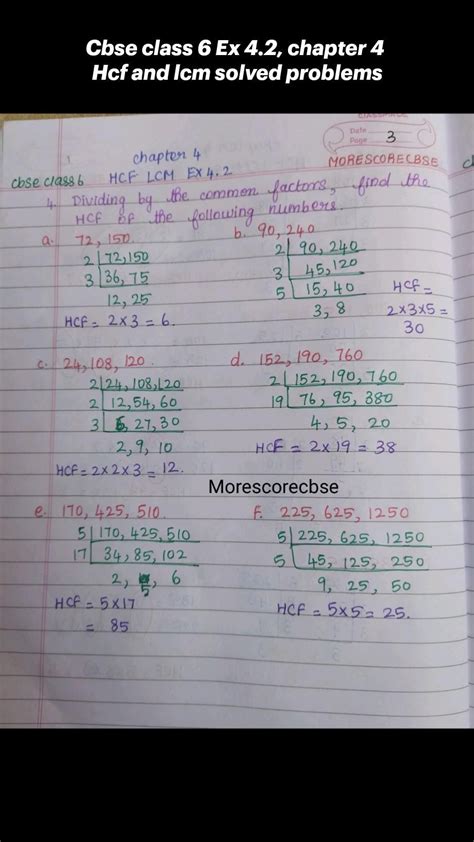 Cbse class 6 Ex 4.2, chapter 4
Hcf and lcm solved problems
CLASSMATE
Date
Page 3
chapter 4
MORESCORECBSE
cbse class 6 HCF LCM EX 4.2
4. Dividing by the common factors, find the
HCF of the following numbers.
a. 72, 150
2 | 72, 150
3 | 36, 75
12, 25
HCF = 2 x 3 = 6.
b. 90, 240
2 | 90, 240
3 | 45, 120
5 | 15, 40
3, 8
HCF =
2x3x5 =
30
c. 24, 108, 120
2 | 24, 108, 120
2 | 12, 54, 60
3 | 6, 27, 30
2, 9, 10
HCF = 2x2x3 = 12.
d. 152, 190, 760
2 | 152, 190, 760
19 | 76, 95, 380
4, 5, 20
HCF = 2 x 19 = 38
Morescorecbse
e. 170, 425, 510
5 | 170, 425, 510
17 | 34, 85, 102
2, 5, 6
HCF = 5x17
= 85
f. 225, 625, 1250
5 | 225, 625, 1250
5 | 45, 125, 250
9, 25, 50
HCF = 5x5 = 25.